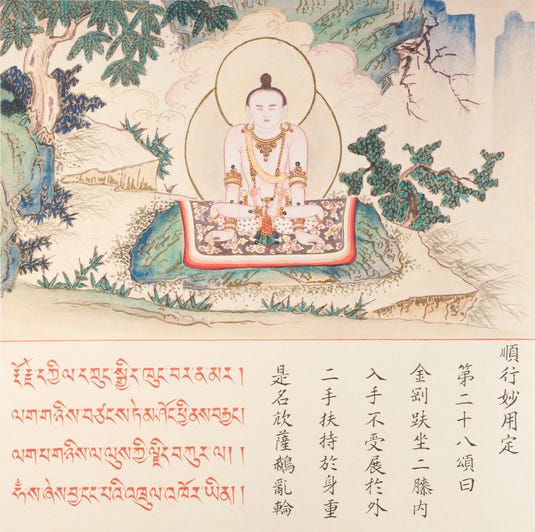 順行妙用定
第二十八頌曰
金剛趺坐二膝内
入手不受展於外
二手扶持於身重
是名薩鵝亂輪
རྡོ་རྗེ་དཀྱིལ་དཀྲུང་སྒྱིད་ཁུང་བར་ནམར།
ལག་གཉིས་བཙངས་ཏེ་མ་ཤོང་ཕྱི་ནས་བརྐྱང།
ལག་པ་གཉིས་ལ་ལུས་ཀྱི་ལྗིད་བཀུར་ལ། །
ཧཾས་ཞེས་བྱ་ངང་པའི་འཁྲུལ་འཁོར་ཡིན། །